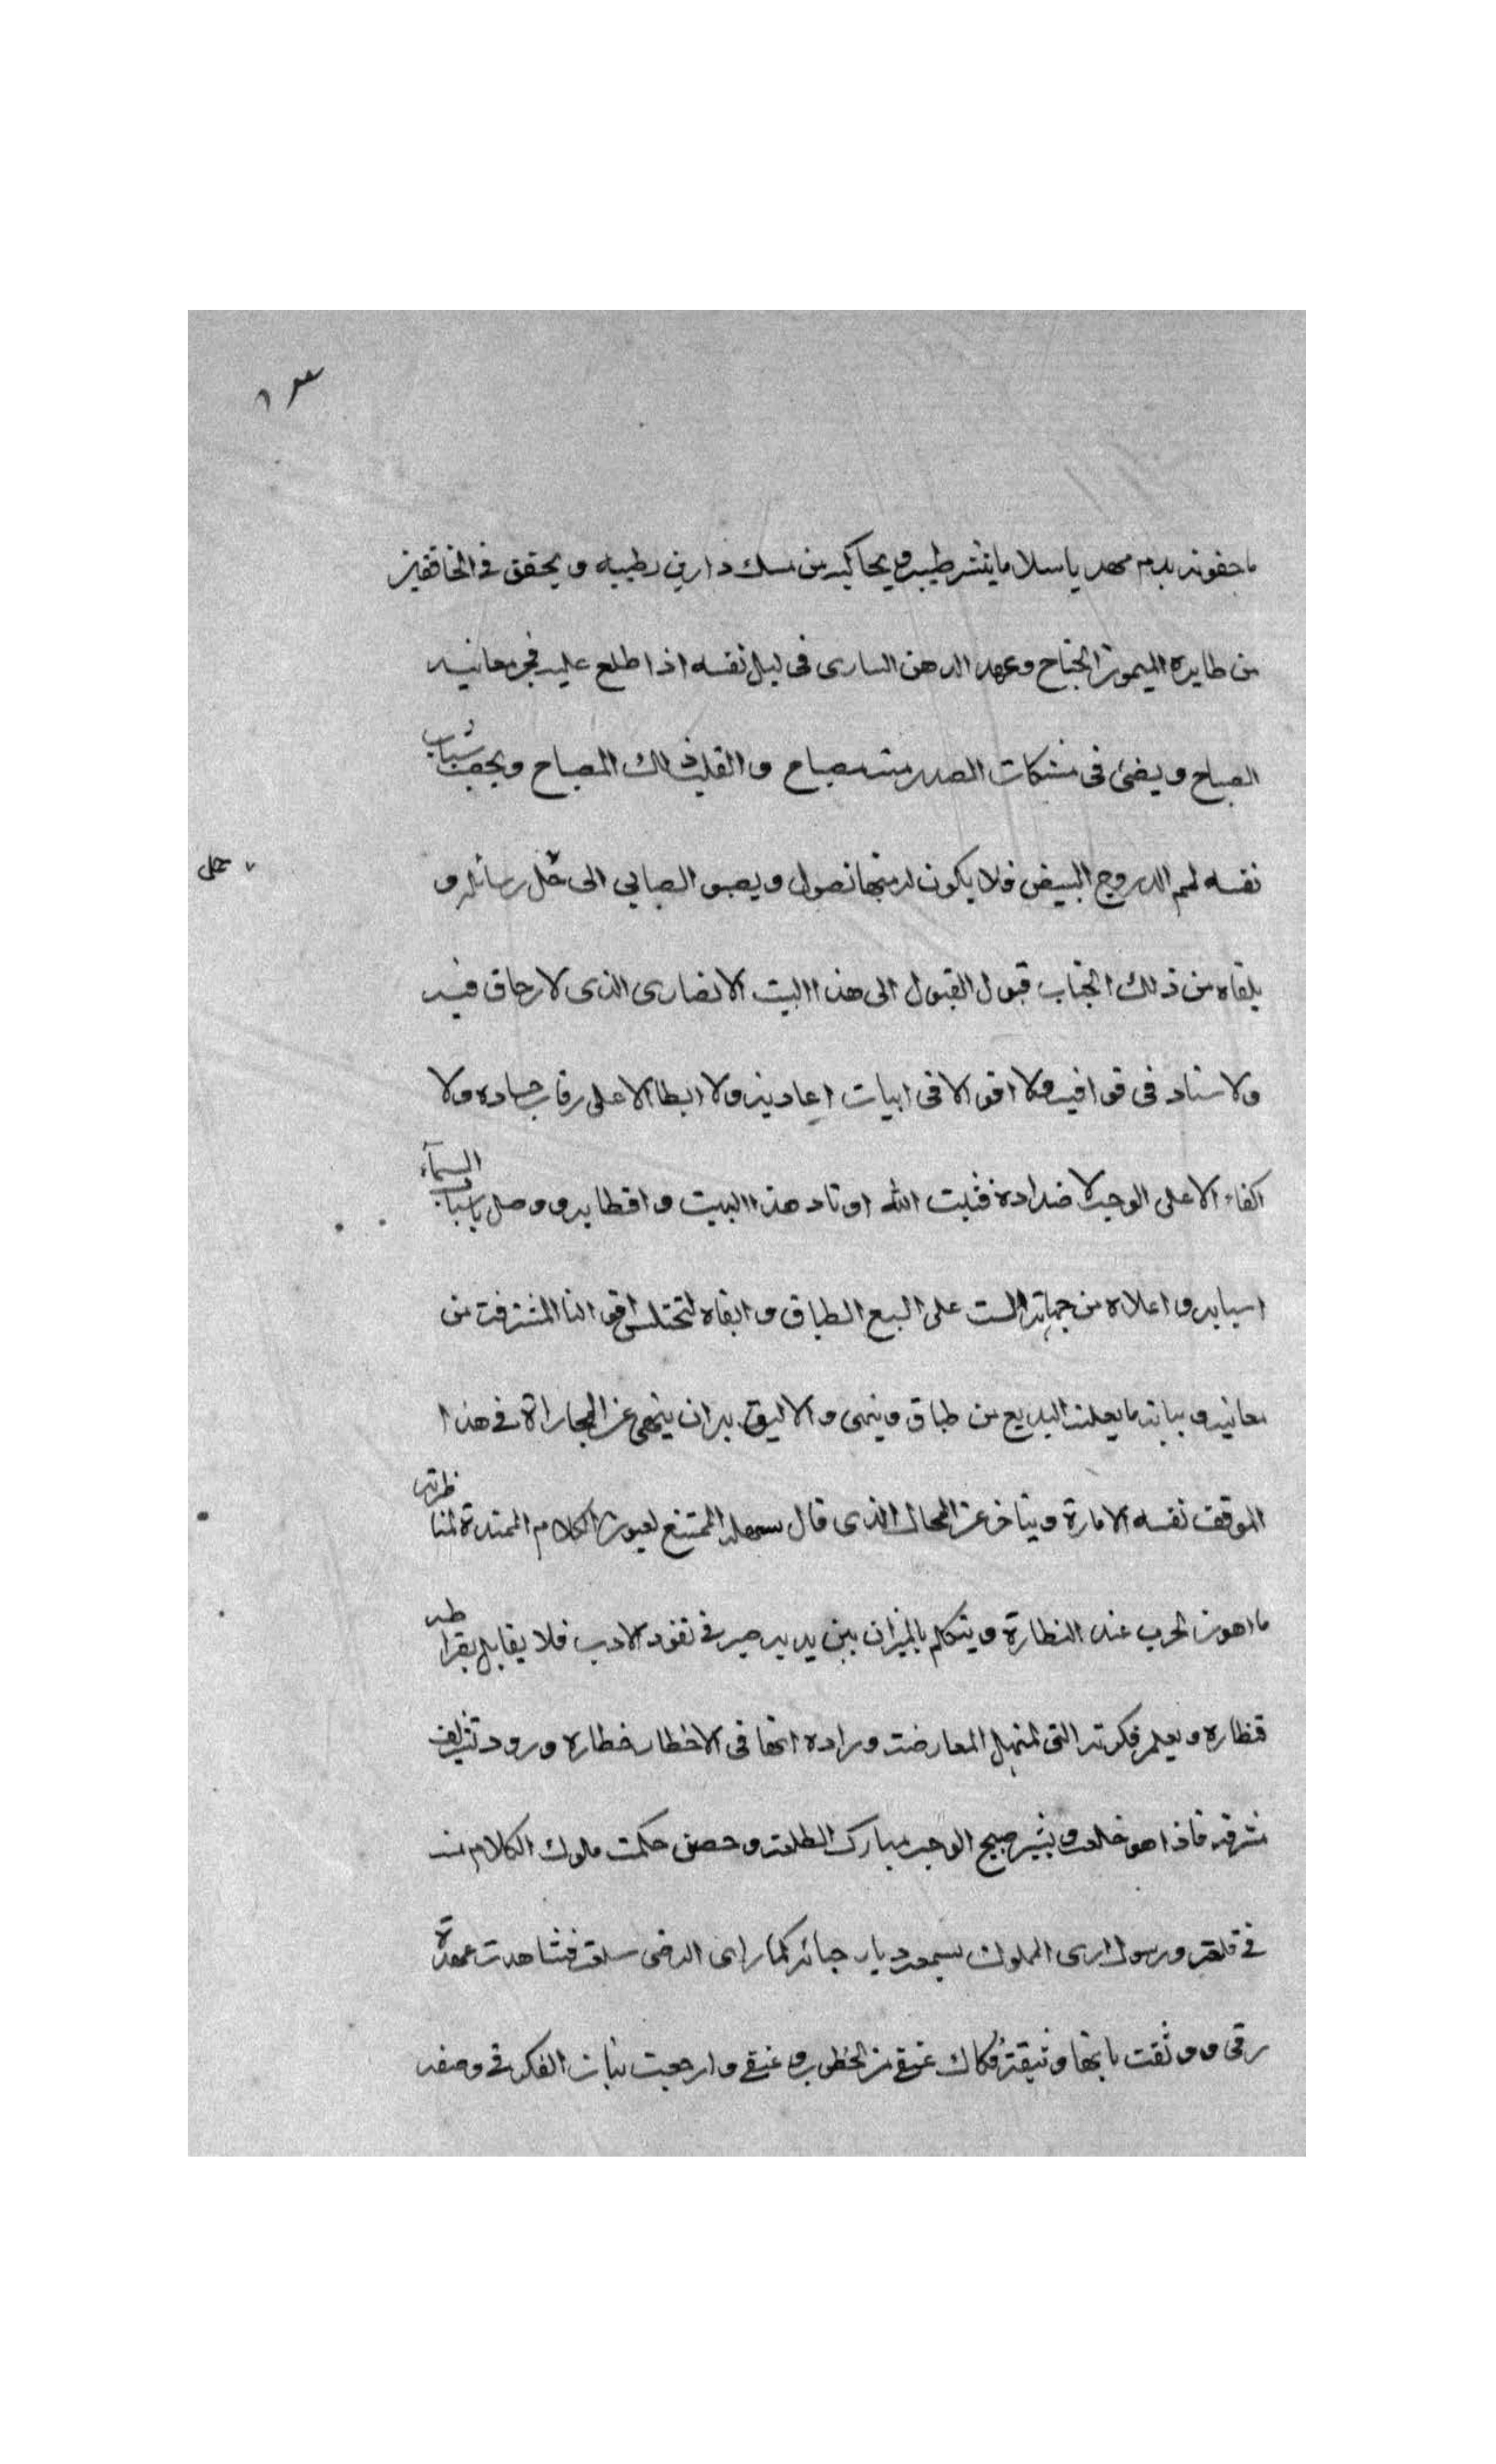 ما جفونه بدم مهديا سلاما ينشر طيبه ويحاكيه من مسك دارين رطيبه ويخفق في الخافقين
من طايره الميمون الجناح وعهد الدهن السارى فى ليل نفسه اذا طلع عليه فجر معانيه
الصباح ويضئ فى مشكات الصدر منه مصباح والقلب ذلك المصباح ويخضب شباب
نفسه لمم الدروج البيض فلا يكون له منها نصول ويصبو الصابي الى حلل رسائله و
يلقاه من ذلك الجناب قبول القبول الى هذا البيت الانصارى الذى لا زحاف فيه
ولا سناد فى قوافيه ولا اقوا الا فى ابيات اعاديه ولا ايطا الا على رقاب حساده ولا
اكفاء الا على الوجه لاضداده فثبت الله اوتاد هذا البيت واقطابه ووصل باسباب السمآء
اسبابه واعلاه من جهاته الست على السبع الطباق وابقاه لتختلس اقوالنا المشرفة من
معانيه وبيانه ما يعلنه البديع من طباق وينهى والاليق به ان ينهى عن المجاراة في هذا
الموقف نفسه الامارة ويتاخر عن المجال الذى قال سهله الممتنع لعيون الكلام الممتدة لمناظرته
ما اهون الحرب عند النظارة ويتكلم بالميزان بين يديه صيرفى نقود الادب فلا يقابل بقراطه
قنطاره ويعلم فكرته التى لمنهل المعارضة وراده انها فى الاخطار خطاره ورود تشريف
شرفه فاذا هو خلعة وبشير صبيح الوجه مبارك الطلعة وحصن حكمت ملوك الكلام منه
في قلعة ورسول ارى المملوك بسمعه ديار جبائه كما راى الرضى سلعه فشاهدت عهدة
رقى ووثقت بانها وثيقة فكاك عنقي من الخطوب وعتقي وارجعت بنات الفكر في وصفه